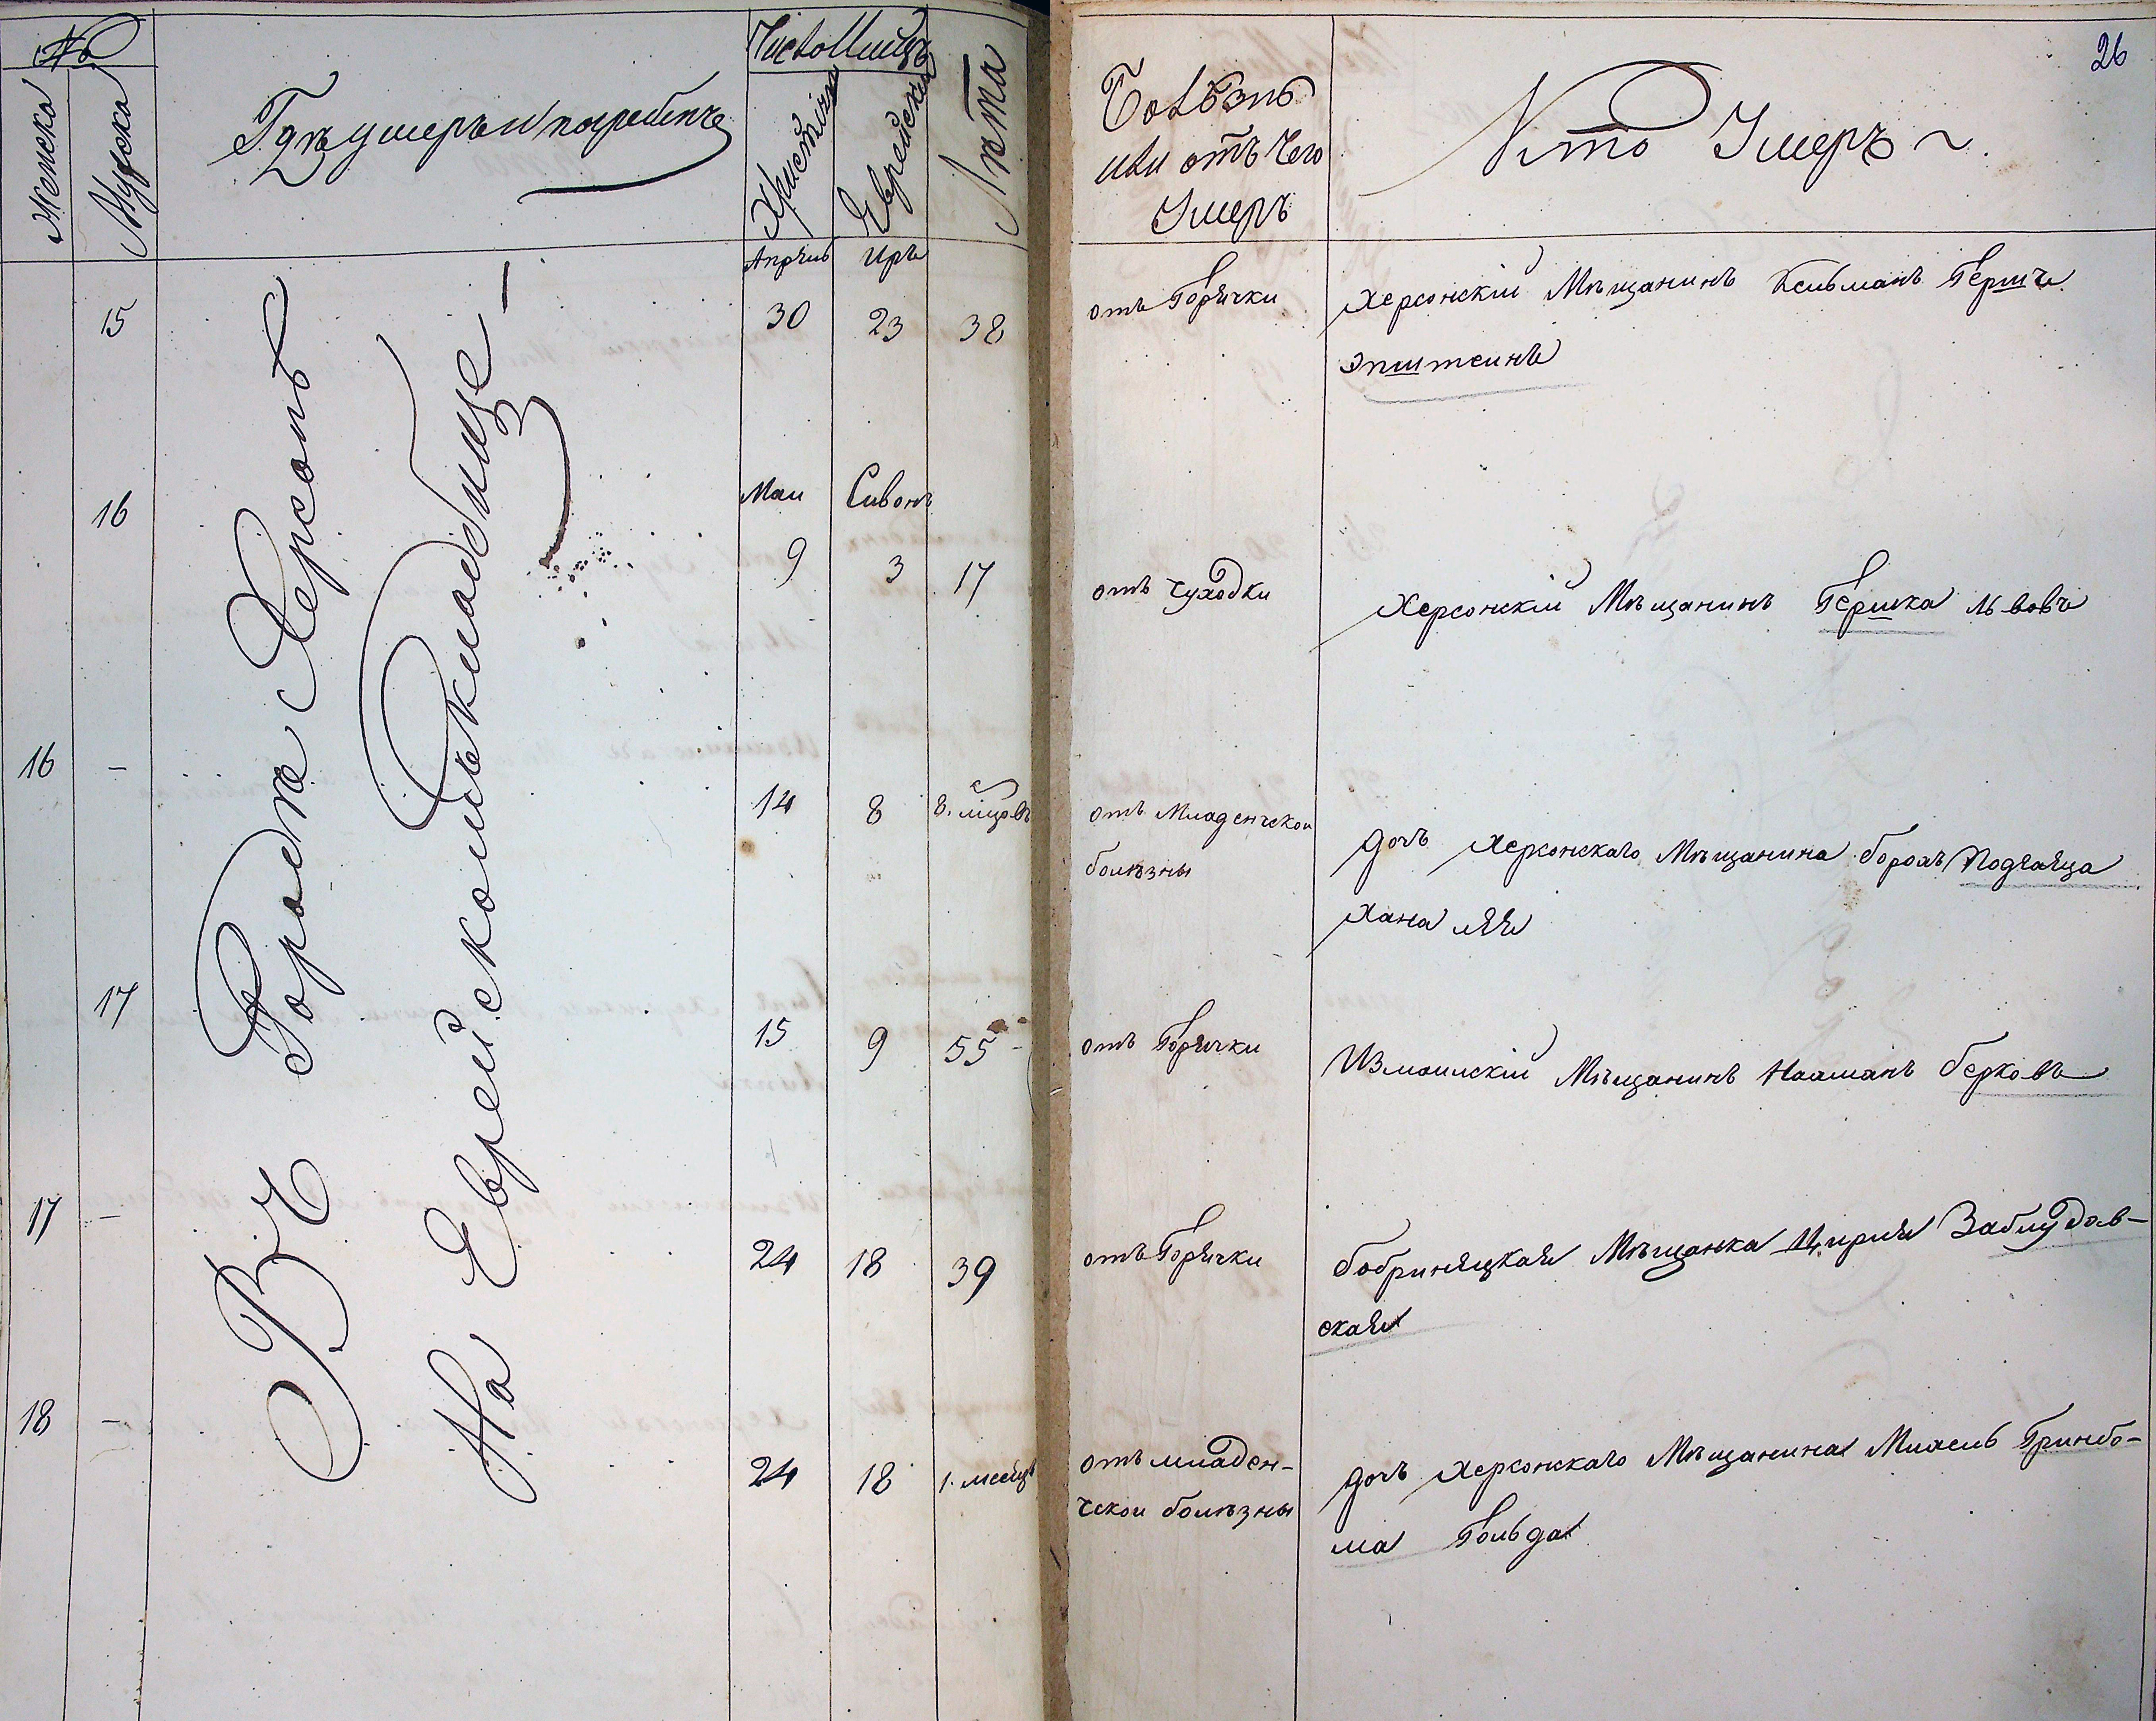 №
Женска
Мужска
Гдѣ умеръ и погребенъ
Число Мицъ
Христіянс
Еврейска
Лѣта
26
Болѣзнь
или отъ Чего
Умеръ
Кто Умеръ
В Городе Херсонъ
На Еврейскомъ кладбище
Апрель Иръ
15 30 23 38 отъ Горячки Херсонскій Мѣщанинъ Кельманъ Гершъ
Эпштеинъ
Маи Сивонъ
16 9 3 17 отъ Чуходки Херсонскіи Мѣщанинъ Гершка Львовъ
16 - 14 8 8. мцовъ отъ Младенчской
болѣзны
дочь Херсонскаго Мѣщанина борохъ Подгаяца
Хана лѣя
17 15 9 55 отъ Горячки Измаилскій Мѣщанинъ Нахманъ берковъ
17 - 24 18 39 отъ Горячки бобринецкая Мѣщанка Цирля Заблудов-
ская
18 - 24 18 1. месецъ отъ младен-
ческои болѣзны
дочь Херсонскаго Мѣщанина Михель Гринбо-
ма Гольда